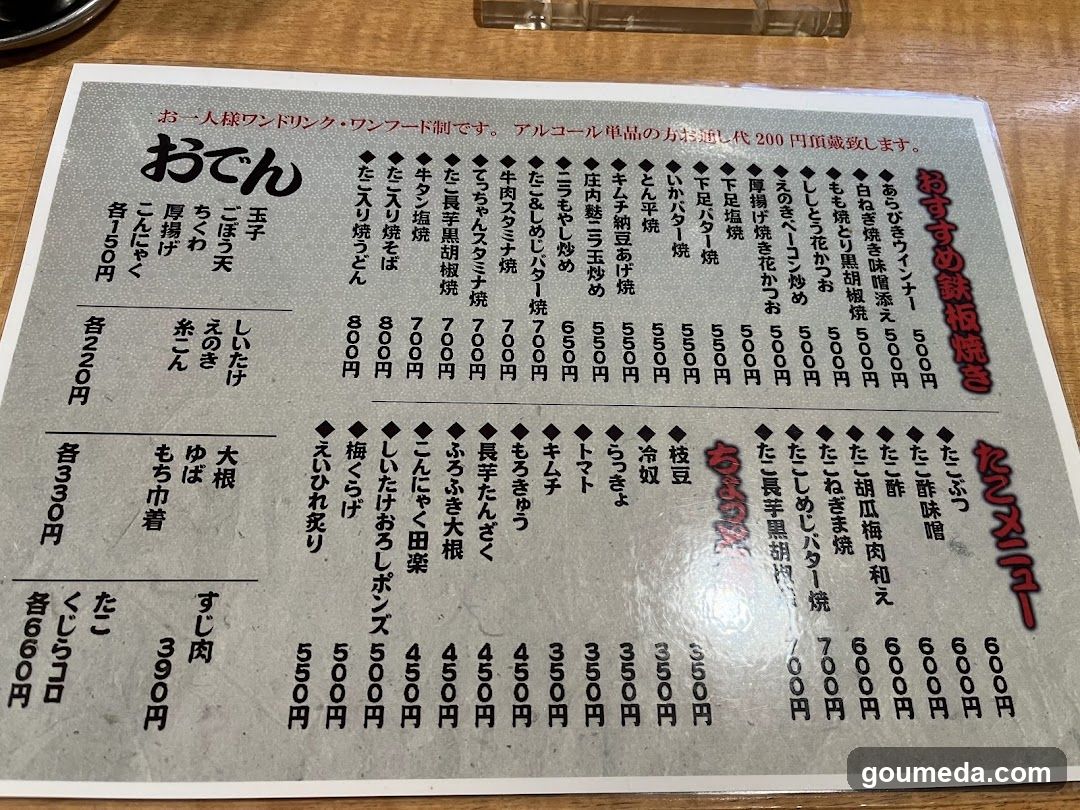 お一人様ワンドリンク・ワンフード制です。 アルコール単品の方お通し代 200 円頂戴致します。
おすすめ鉄板焼き
◆あらびきウィンナー 500円
◆白ねぎ焼き味噌添え 500円
◆もも焼とり黒胡椒焼 500円
◆ししとう花かつお 500円
◆えのきベーコン炒め 500円
◆厚揚げ焼き花かつお 500円
◆下足塩焼 550円
◆下足バター焼 550円
◆いかバター焼 550円
◆とん平焼 550円
◆キムチ納豆あげ焼 550円
◆庄内麩ニラ玉炒め 550円
◆ニラもやし炒め 650円
◆たこ&しめじバター焼 700円
◆牛肉スタミナ焼 700円
◆てっちゃんスタミナ焼 700円
◆たこ長芋黒胡椒焼 700円
◆牛タン塩焼 700円
◆たこ入り焼そば 800円
◆たこ入り焼うどん 800円
たこメニュー
◆たこぶつ 600円
◆たこ酢味噌 600円
◆たこ酢 600円
◆たこ胡瓜梅肉和え 600円
◆たこねぎま焼 600円
◆たこしめじバター焼 700円
◆たこ長芋黒胡椒 700円
◆枝豆 350円
◆冷奴 350円
◆らっきょ 350円
◆トマト 350円
◆キムチ 350円
◆もろきゅう 450円
◆長芋たんざく 450円
◆ふろふき大根 450円
◆こんにゃく田楽 450円
◆しいたけおろしポンズ 500円
◆梅くらげ 500円
◆えいひれ炙り 550円
おでん
玉子
ごぼう天
ちくわ
厚揚げ
こんにゃく
各150円
しいたけ
えのき
糸こん
各220円
大根
ゆば
もち巾着
各330円
すじ肉
390円
たこ
くじらコロ
各660円
goumeda.com